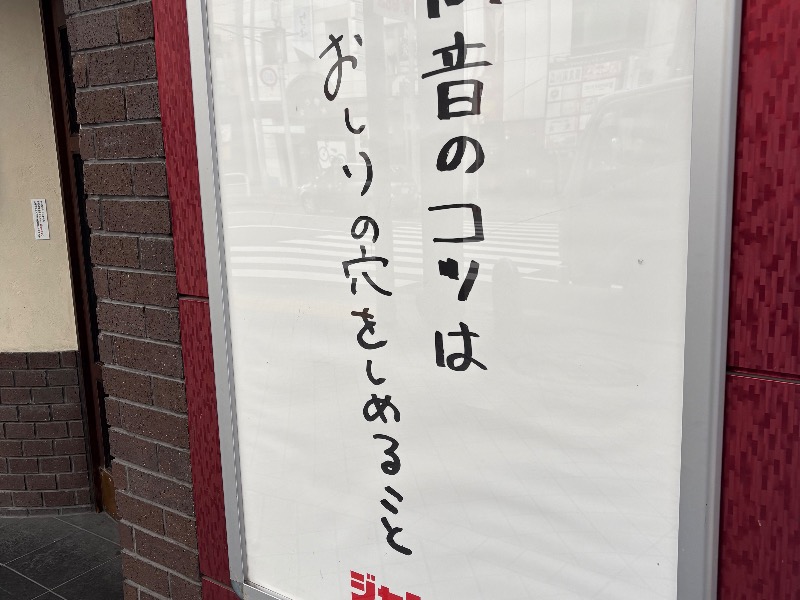 音のコツは
おしりの穴をしめること
ジャ